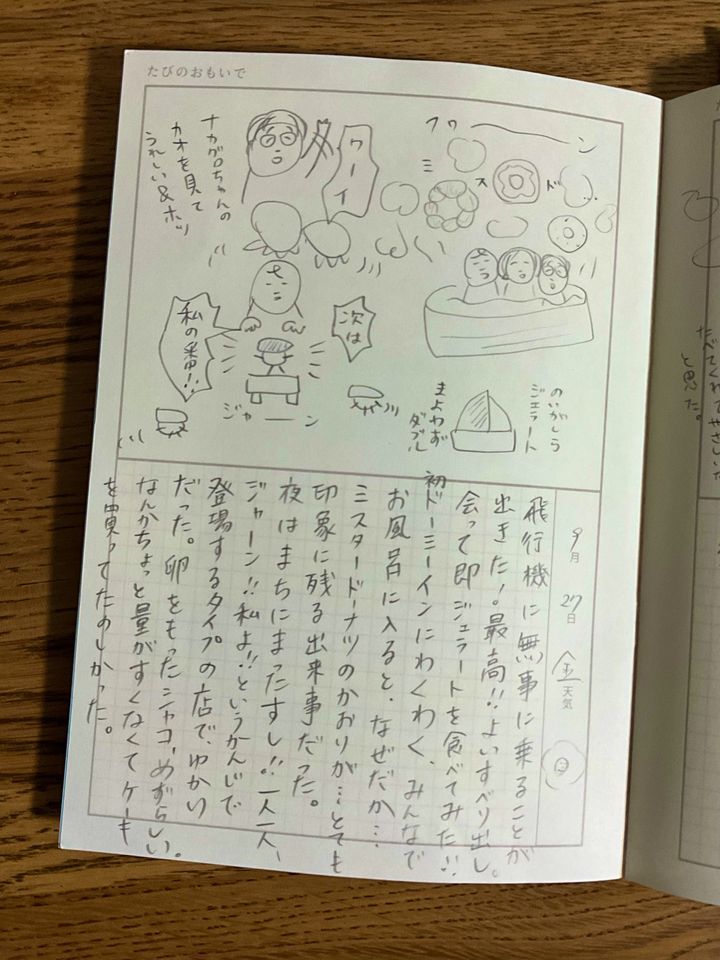 たびのおもいで
フワーーン
ミスド
ワーイ
ナカグロちゃんの
カオを見て
うれしい&ホッ
次は
私の番!!
ジャーーン
のいがしら
ジェラート
まよわず
ダブル
9月27日 金 天気
飛行機に無事に乗ることが
出きた!。最高!!よいすべり出し。
会って即ジェラートを食べてみた!!
初ドーミーインにわくわく、みんなで
お風呂に入ると、なぜだか…
ミスタードーナツのかおりが…とても
印象に残る出来事だった。
夜はまちにまったすし!!一人一人、
ジャーン!!私よ!!というかんじで
登場するタイプの店で、ゆかい
だった。卵をもったシャコ、めずらしい。
なんかちょっと量がすくなくてケーキ
を買ってたのしかった。
と思った。